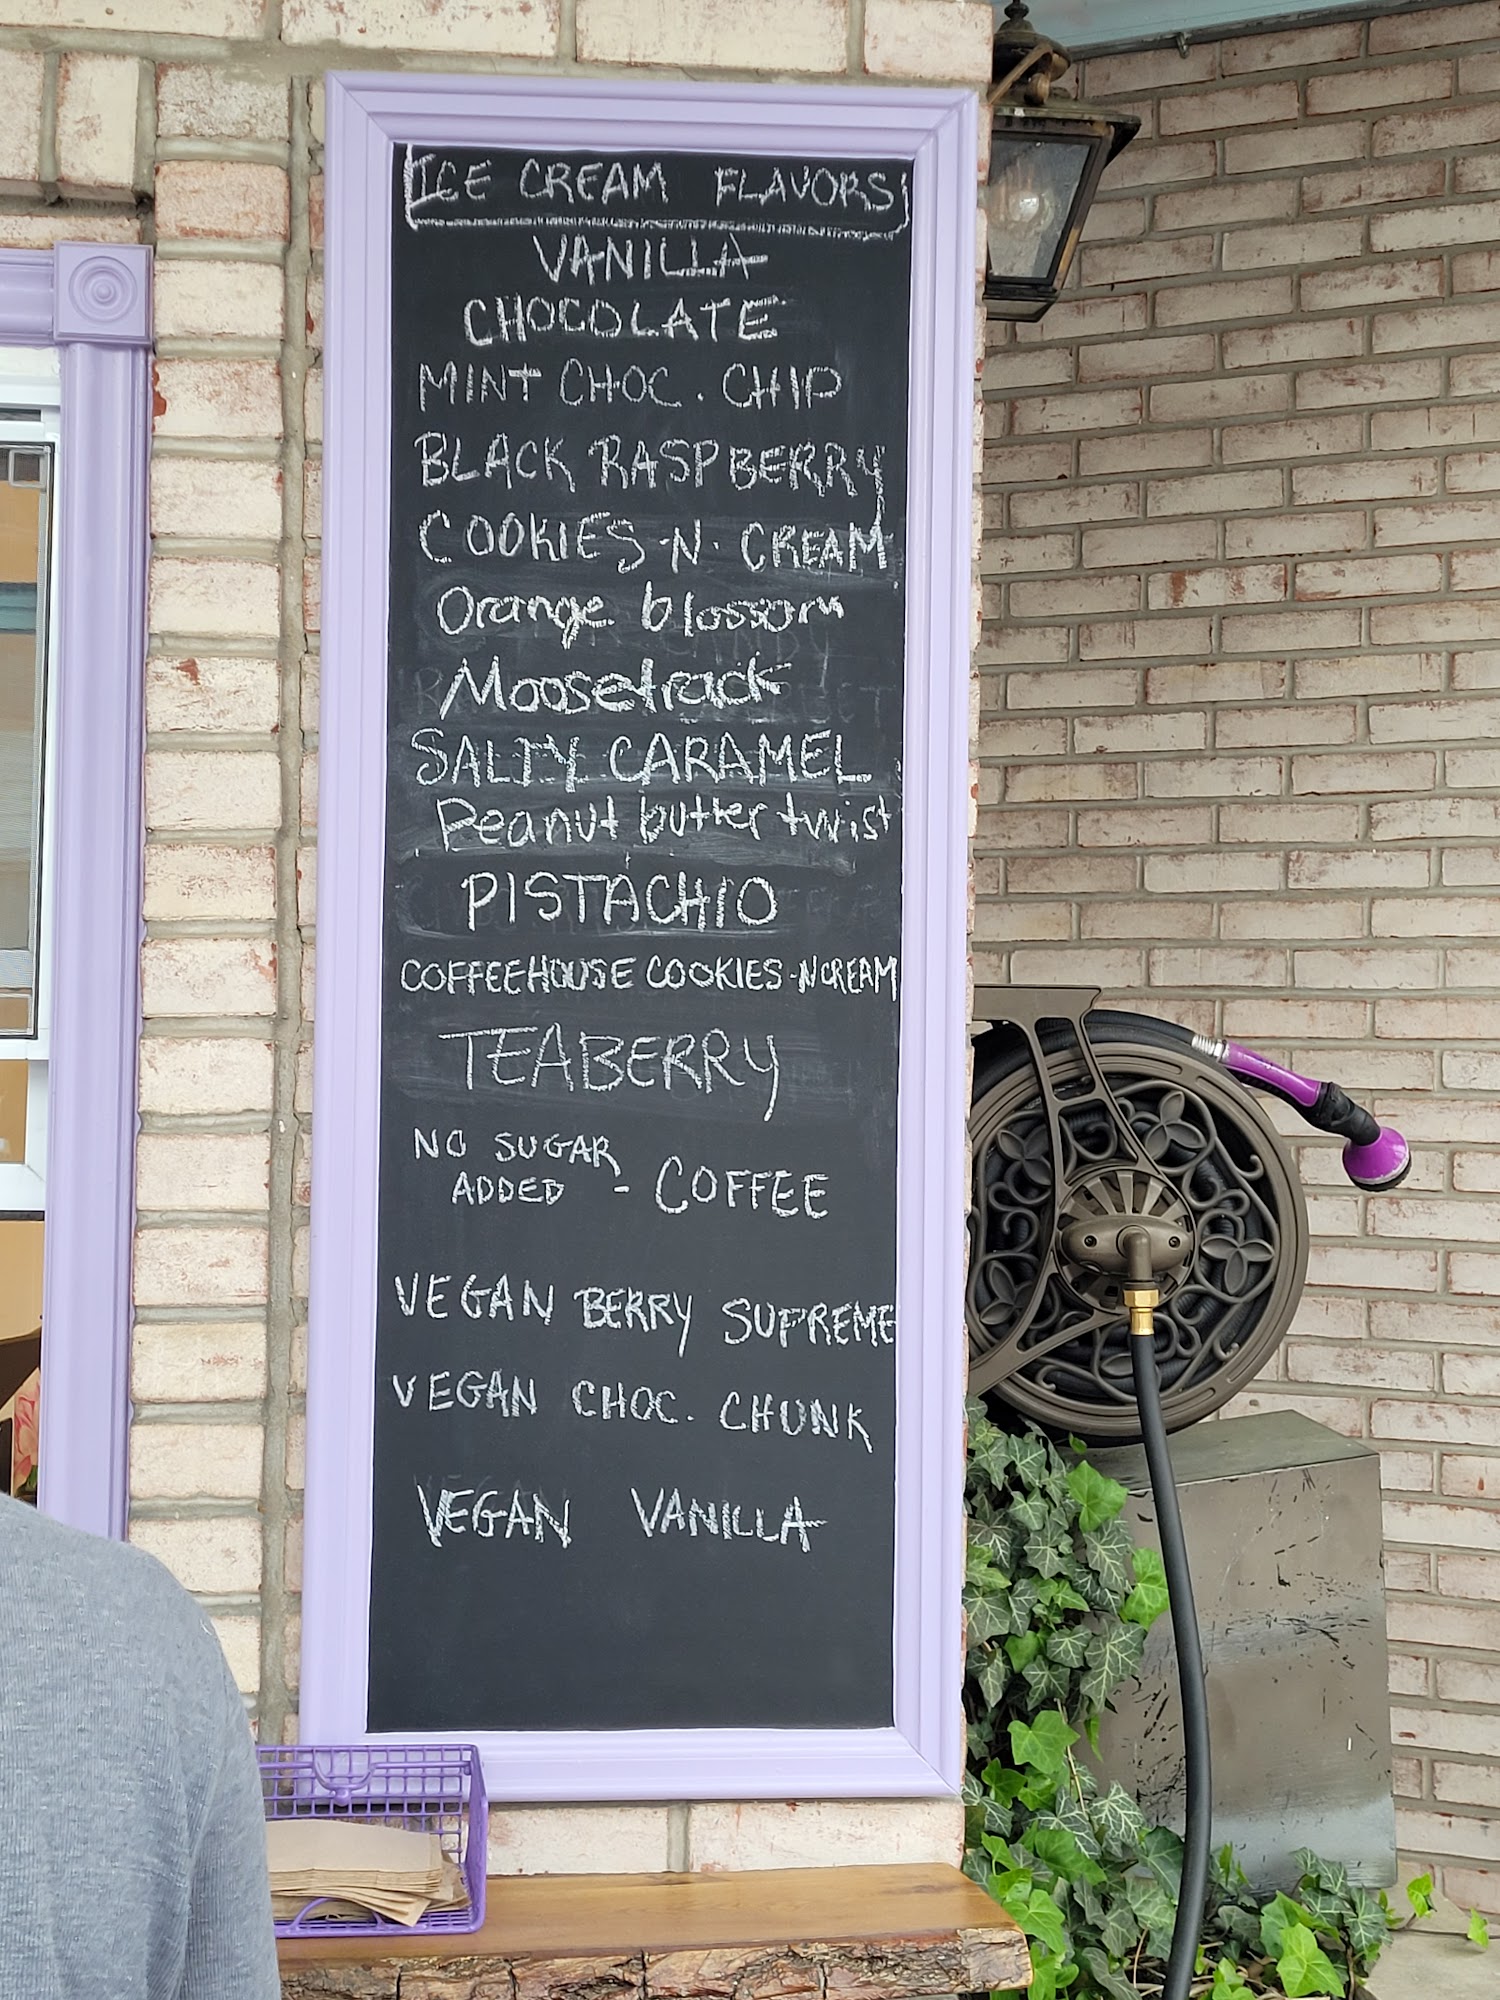 ICE CREAM FLAVORS
VANILLA
CHOCOLATE
MINT CHOC. CHIP
BLACK RASPBERRY
COOKIES-N-CREAM
Orange blossom
Moosetrack
SALTY CARAMEL
Peanut butter twist
PISTACHIO
COFFEEHOUSE COOKIES-N CREAM
TEABERRY
NO SUGAR
ADDED - COFFEE
VEGAN BERRY SUPREME
VEGAN CHOC. CHUNK
VEGAN VANILLA